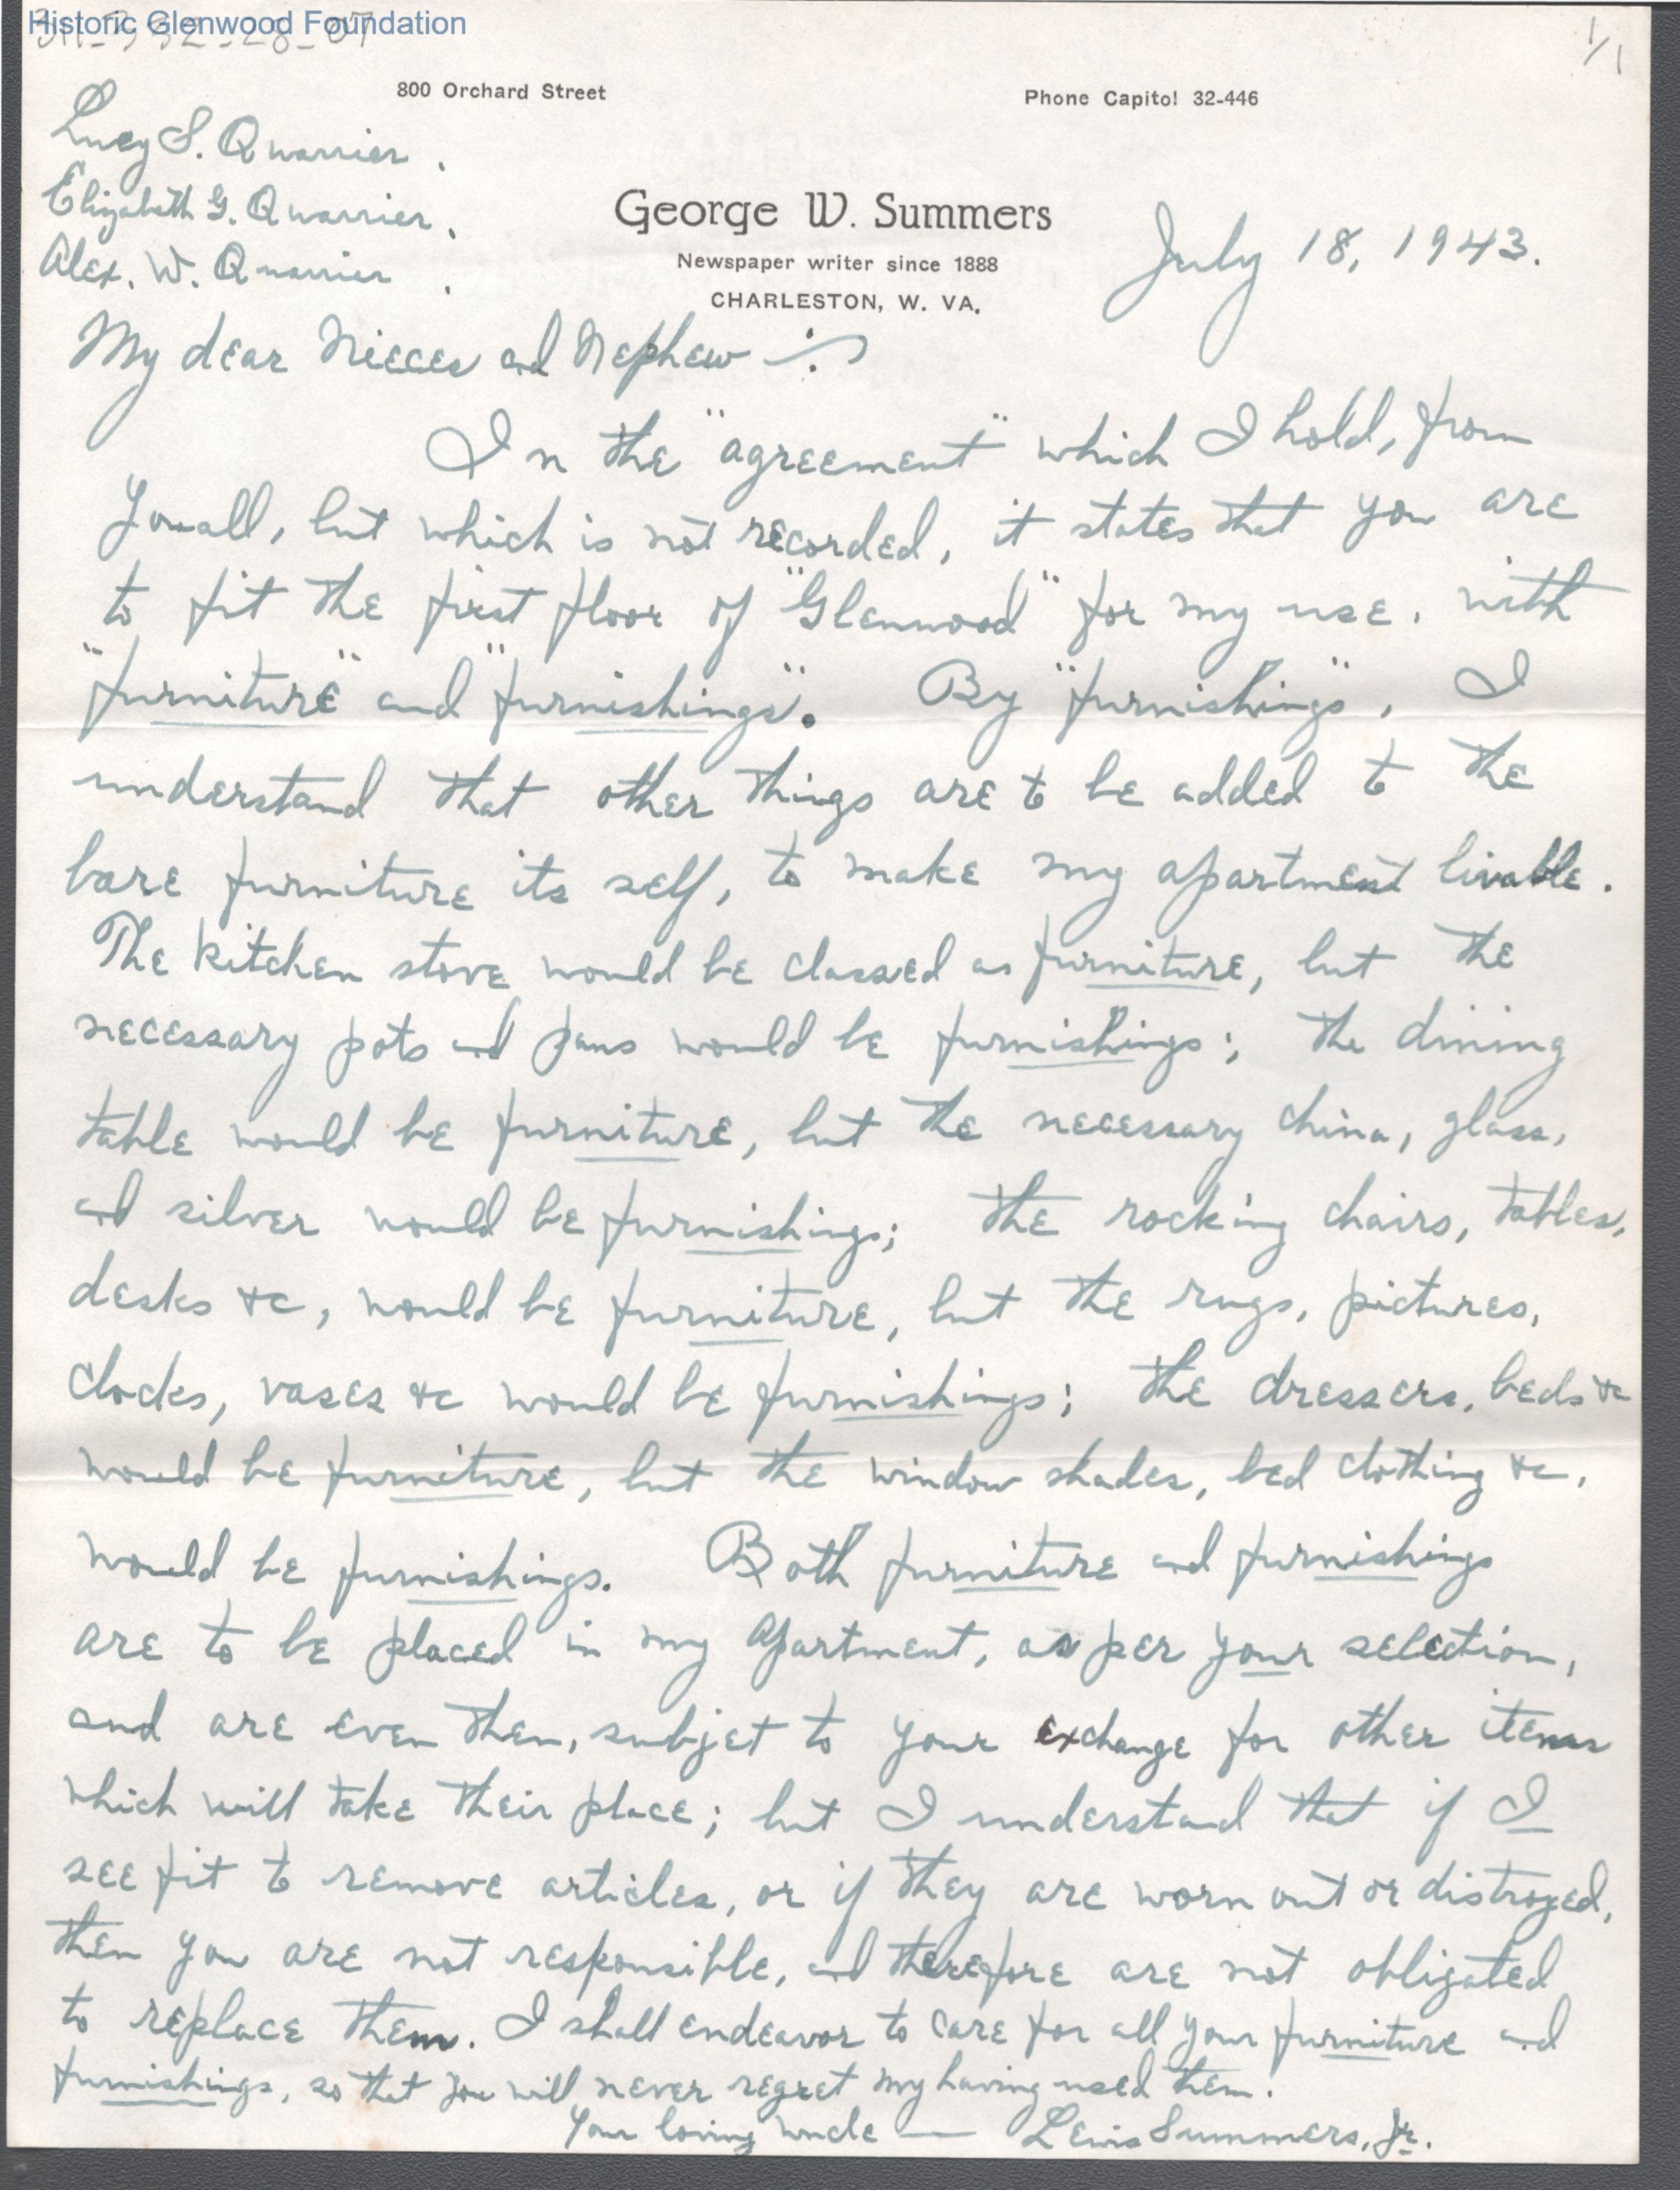 Historic Glenwood Foundation
1/1
800 Orchard Street
Phone Capitol 32-446
Lucy S. Quarrier,
Elizabeth G. Quarrier,
Alex. W. Quarrier,
George W. Summers
Newspaper writer since 1888
CHARLESTON, W. VA.
July 18, 1943.
My dear Nieces and Nephew :
In the "agreement" which I hold, from
You all, but which is not recorded, it states that you are
to fit the first floor of "Glenwood" for my use, with
"furniture" and "furnishings". By "furnishings", I
understand that other things are to be added to the
bare furniture its self, to make my apartment livable.
The kitchen stove would be classed as furniture, but the
necessary pots and pans would be furnishings; the dining
table would be furniture, but the necessary china, glass,
and silver would be furnishings; the rocking chairs, tables,
desks &c, would be furniture, but the rugs, pictures,
clocks, vases &c would be furnishings; the dressers, beds &c
would be furniture, but the window shades, bed clothing &c,
would be furnishings. Both furniture and furnishings
are to be placed in my apartment, as per your selection,
and are even then, subjet to your exchange for other items
which will take their place; but I understand that if I
see fit to remove articles, or if they are worn out or distroyed,
then you are not responsible, and therefore are not obligated
to replace them. I shall endeavor to care for all your furniture and
furnishings, so that you will never regret my having used them.
Your loving uncle — Lewis Summers, Jr.